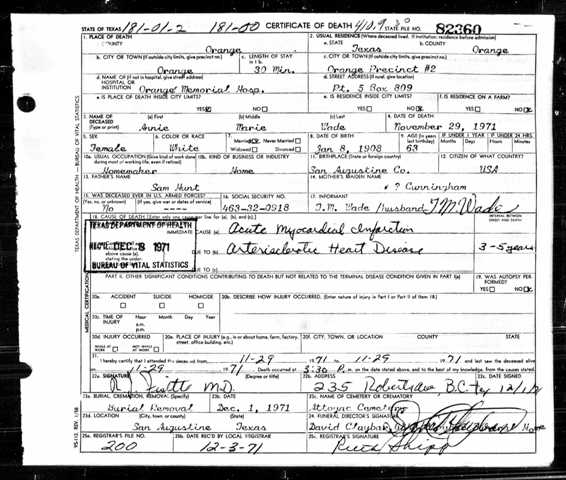 STATE OF TEXAS 181-01-2 181-00 CERTIFICATE OF DEATH STATE FILE NO. 82360
1. PLACE OF DEATH
COUNTY Orange
2. USUAL RESIDENCE (Where deceased lived. If institution, residence before admission)
a. STATE Texas b. COUNTY Orange
b. CITY OR TOWN (If outside city limits, give precinct no.) Orange
c. LENGTH OF STAY 30 Min.
c. CITY OR TOWN (If outside city limits, give precinct no.) Orange Precinct #2
d. NAME OF (If not in hospital, give street address) HOSPITAL OR INSTITUTION Orange Memorial Hosp.
d. STREET ADDRESS (If rural, give location) Rt. 5 Box 809
e. IS PLACE OF DEATH INSIDE CITY LIMITS? YES NO
e. IS RESIDENCE INSIDE CITY LIMITS? YES NO
f. IS RESIDENCE ON A FARM? YES NO
3. NAME OF DECEASED (Type or print) (a) First Annie (b) Middle Marie (c) Last Wade
4. DATE OF DEATH November 29, 1971
5. SEX Female
6. COLOR OR RACE White
7. Married Never Married Widowed Divorced
8. DATE OF BIRTH Jan 8, 1908
9. AGE 63
IF UNDER 1 YEAR Months Days
IF UNDER 24 HRS. Hours Min.
10a. USUAL OCCUPATION (Give kind of work done during most of working life, even if retired) Homemaker
10b. KIND OF BUSINESS OR INDUSTRY Home
11. BIRTHPLACE (State or foreign country) San Augustine Co.
12. CITIZEN OF WHAT COUNTRY? USA
13. FATHER'S NAME Sam Hunt
14. MOTHER'S MAIDEN NAME ? Cunningham
15. WAS DECEASED EVER IN U.S. ARMED FORCES? No
16. SOCIAL SECURITY NO. 463-32-0918
17. INFORMANT T.M. Wade Husband T.M. Wade
18. CAUSE OF DEATH
INTERVAL BETWEEN ONSET AND DEATH
IMMEDIATE CAUSE (a) Acute Myocardial Infarction
TEXAS DEPARTMENT OF HEALTH
DEC 8 1971
BUREAU OF VITAL STATISTICS
DUE TO Arteriosclerotic Heart Disease 3-5 years
PART II. OTHER SIGNIFICANT CONDITIONS CONTRIBUTING TO DEATH BUT NOT RELATED TO THE TERMINAL DISEASE CONDITION GIVEN IN PART I(a)
19. WAS AUTOPSY PERFORMED? YES NO
20a. ACCIDENT SUICIDE HOMICIDE
20b. DESCRIBE HOW INJURY OCCURRED. (Enter nature of injury in Part I or Part II of item 18.)
20c. TIME OF INJURY Hour Month Day Year a.m. p.m.
20d. INJURY OCCURRED WHILE AT WORK NOT WHILE AT WORK
20e. PLACE OF INJURY (e.g., in or about home, farm, factory, street, office building, etc.)
20f. CITY, TOWN, OR LOCATION COUNTY STATE
21. I hereby certify that I attended the deceased from 11-29 1971 to 11-29 1971 and last saw the deceased alive
on 11-29 1971. Death occurred at 3:30 P.m. on the date stated above, and to the best of my knowledge, from the causes stated.
22a. SIGNATURE M.D. (Degree or title)
22b. ADDRESS 235
22c. DATE SIGNED
23a. BURIAL, CREMATION, REMOVAL (Specify) Burial Removal
23b. DATE Dec. 1, 1971
23c. NAME OF CEMETERY OR CREMATORY Attoyac Cemetery
23d. LOCATION (City, town, or county) (State) San Augustine Texas
24. FUNERAL DIRECTOR'S SIGNATURE David Claybar Home
25a. REGISTRAR'S FILE NO. 200
25b. DATE REC'D BY LOCAL REGISTRAR 12-3-71
25c. REGISTRAR'S SIGNATURE Ruth Shipp
TEXAS DEPARTMENT OF HEALTH — BUREAU OF VITAL STATISTICS
MEDICAL CERTIFICATION